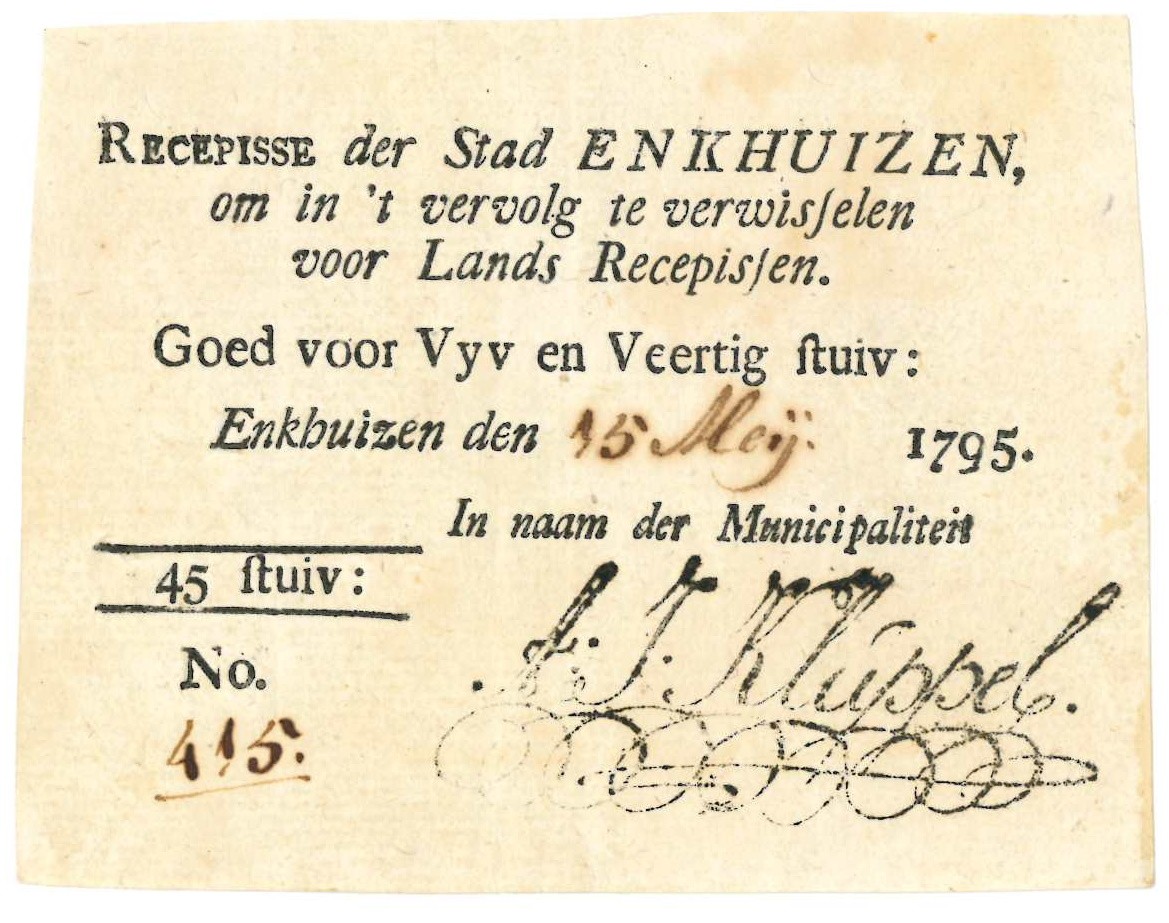 RECEPISSE der Stad ENKHUIZEN,
om in 't vervolg te verwisſelen
voor Lands Recepisſen.
Goed voor Vyv en Veertig ſtuiv:
Enkhuizen den 15 Meÿ. 1795.
In naam der Municipaliteit
45 ſtuiv:
No.
415.
J. Kluppel.